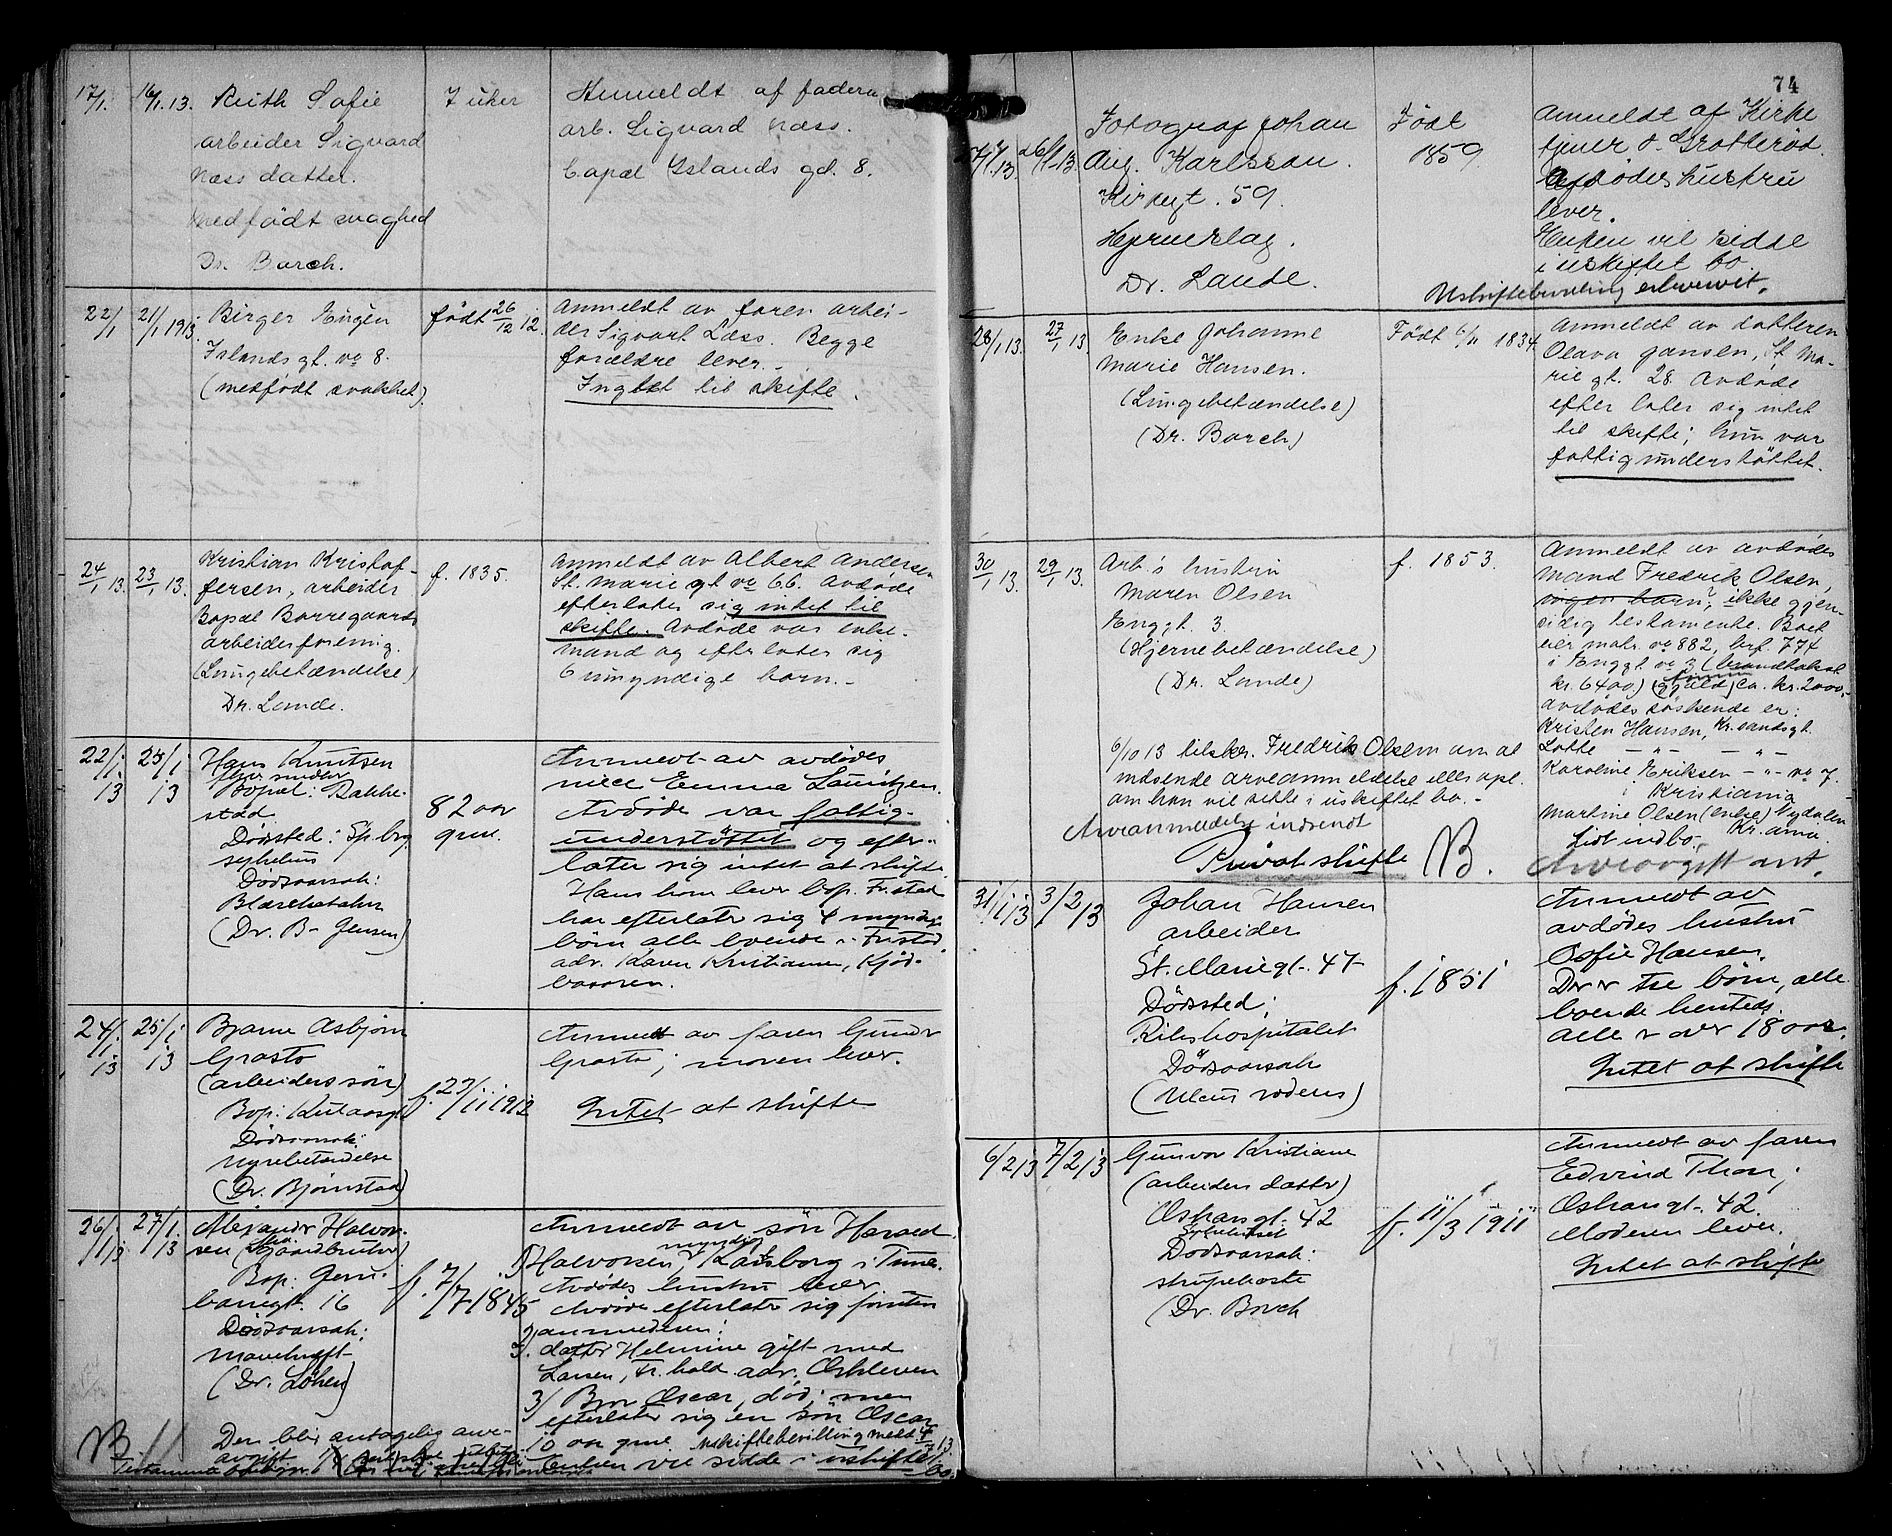 17/1. 16/1.13. Ruth Sofie
arbeider Sigvard
Næss datter.
medfödt svaghed
Dr. Borch.
7 uker
Anmeldt af faderen
arb. Sigvard Næss.
bopæl Islands gd. 8.
22/1 21/1 1913
Birger Eugen
Islandsgt. no 8.
(medfödt svakhet).
födt 26/12 12.
Anmeldt av faren arbei-
der Sigvart Næss. Begge
forældre lever.-
Intet til skifte.
24/1 13. 23/1 13.
Kristian Kristof-
fersen, arbeider
Bopæl Borregaards
arbeiderforening.
(Lungebetændelse)
Dr. Lande.
f. 1835.
Anmeldt av Albert Andersen
St. Marie gt no 66. Avdöde
efterlater sig intet til
skifte. Avdöde var enke-
mand og efterlater sig
6 umyndige barn.-
22/1 13 23/1 13
Hans Knutsen
Bopæl: Bakke-
stad
Dödsted: Sp.brg
sykehus
Dödsaarsak:
Blærekatahr
(Dr. B- Jensen)
82 aar
gml.
Anmeldt av avdödes
niece Emma Lauritzen.
Avdöde var fattig-
understöttet og efter-
later sig intet at skifte
Hans kone lever bop. Fr.stad
har efterlatt sig 4 myndige
börn alle boende i Fr.stad.
adr. Karen Kristiansen, Kjöd-
basaren.
24/1 13 25/1 13
Bjarne Asbjörn
Grasto
(arbeiders sön)
Bop: Kulaasgt
Dödsaarsak:
Nyrebetændelse
(Dr. Björnstad)
f. 23/11 1912
Anmeldt av faren Gunder
Grasto; moren lever.
Intet at skifte
26/1 13 27/1. 13
Alexander Halvor-
sen (Gaardbruker)
Bop: Jern-
banegt. 16
Dödsaarsak:
Mavekræft
(Dr. Löken)
f. 7/7 1845
Anmeldt av sön Harald
myndig
1) Halvorsen, Karlsborg i Tune.
Avdödes hustru lever
Avdöde efterlater sig foruten
anmelderen:
2) datter Helmine gift med
Larsen, Fr.hald adr. Oskleven
3/ Bror Oscar, död, men
efterlater sig en sön Oscar
10 aar gml. Uskiftebevilling meddelt
Enken vil sidde i uskiftet bo.
B
Der blir antagelig arve-
avgift
74
27/1.13. 26/1-13.
Fotograf Johan
Aug. Karlsson.
Kirkegt. 59.
Hjerneslag.
Dr. Lande.
Födt
1859
Anmeldt af Kirke
tjener O. Grotteröd.
Afdödes hustru
lever.
Enken vil sidde
i uskiftet bo.
Uskiftebevilling erhvervet.
28/1 13. 27/1 13
Enke Johanne
Marie Hansen.
(Lungebetændelse)
(Dr. Borch)
Födt 6/11 1834.
Anmeldt av datteren
Olava Jansen, St. Ma-
rie gt. 28. Avdöde
efter later sig intet
til skifte; hun var
fattigunderstöttet.
30/1 13. 29/1 13.
Arb's hustru
Maren Olsen
Enggt. 3
(Hjernebetændelse)
(Dr. Lande)
f. 1853.
Anmeldt av avdödes
mand Fredrik Olsen,
ingen barn, ikke gjen-
sidig testamente. Boet
eier matr. no 882, brf. 774
i Enggt no 3 (brandtakst
kr. 6400) (gjæld ca. kr. 2000.-
avdödes söskende er:
Kristen Hansen, Kr.sandsgt.
Lotte -"- -"-
Karoline Eriksen -"- no 7.
i Kristiania
Martine Olsen (enke) Nydalen
Kr.ania.
Lidt indbo.
6/10 13 tilskr. Fredrik Olsen om at
indsende arveanmeldelse eller opl.
om han vil sitte i uskiftet bo.-
Arveanmeldelse indsendt
Privat skifte B. Arveavgift ant.
31/1 13 3/2 13
Johan Hansen
arbeider
St. Mariegt. 47
Dödsted:
Rikshospitalet
Dödsaarsak
(Ulcus rodens)
f. 1851
Anmeldt av
avdödes hustru
Sofie Hansen.
Der er tre börn, alle
boende hersteds.
alle er over 18 aar.
Intet at skifte
6/2 13 7/2 13
Gunvor Kristiane
(arbeiders datter)
Oskarsgt. 42
Dödsaarsak:
strupehoste
(Dr. Borch
f. 11/3 1911
Anmeldt av faren
Edvind Thon,
Oskarsgt. 42.
Moderen lever.
Intet at skifte